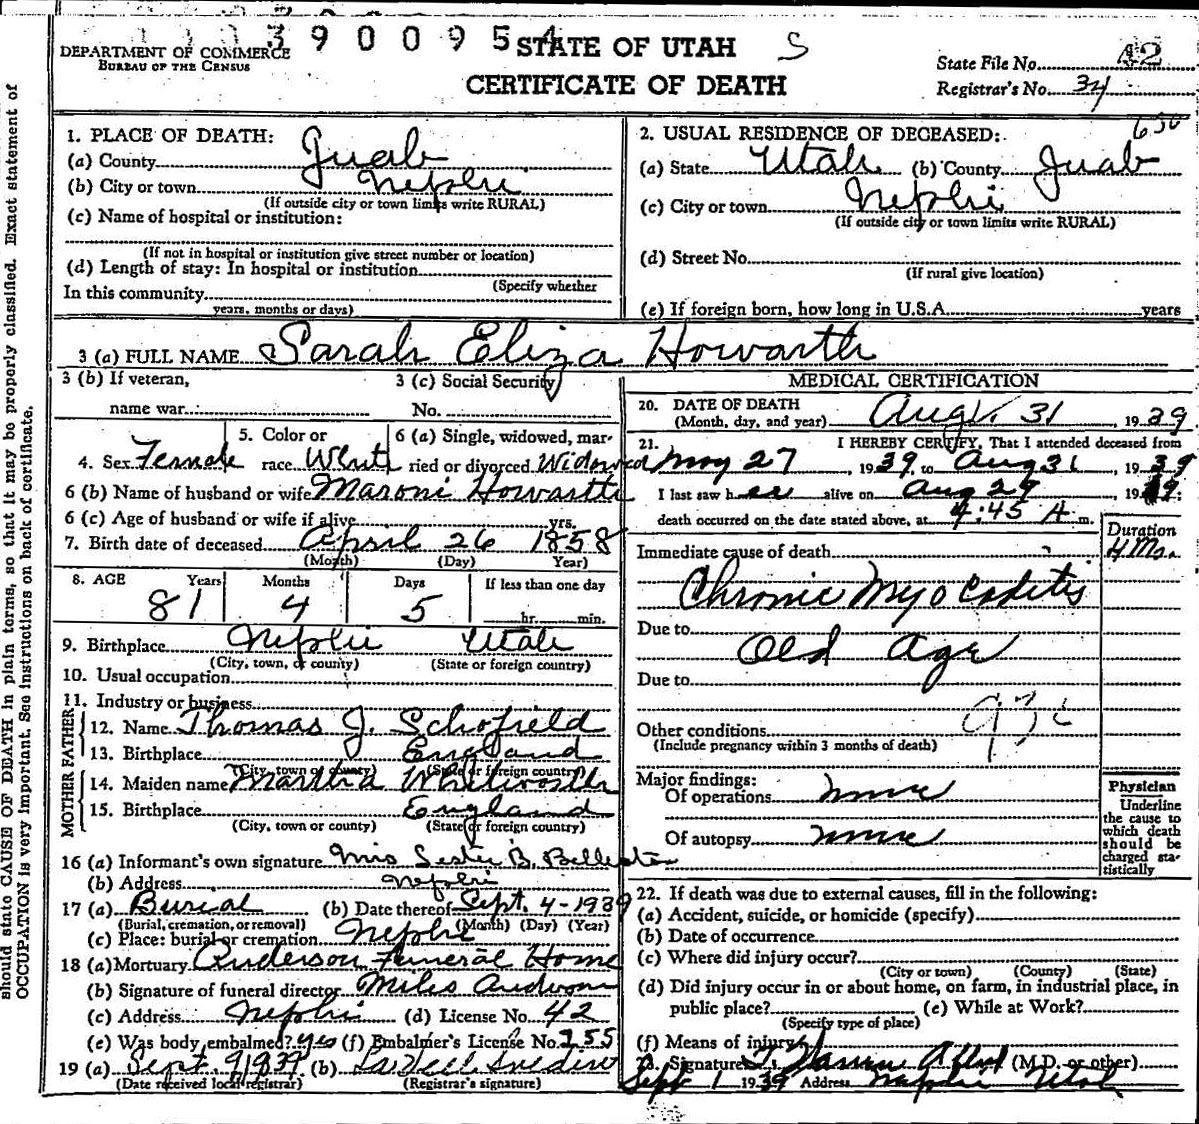 390095
STATE OF UTAH S
DEPARTMENT OF COMMERCE
BUREAU OF THE CENSUS
CERTIFICATE OF DEATH
State File No. 42
Registrar's No. 34
650
should state CAUSE OF DEATH in plain terms, so that it may be properly classified. Exact statement of
OCCUPATION is very important. See instructions on back of certificate.
1. PLACE OF DEATH:
(a) County Juab
(b) City or town Nephi
(If outside city or town limits write RURAL)
(c) Name of hospital or institution:
(If not in hospital or institution give street number or location)
(d) Length of stay: In hospital or institution
(Specify whether
In this community
years, months or days)
2. USUAL RESIDENCE OF DECEASED:
(a) State Utah (b) County Juab
(c) City or town Nephi
(If outside city or town limits write RURAL)
(d) Street No.
(If rural give location)
(e) If foreign born, how long in U.S.A. years
3 (a) FULL NAME Sarah Eliza Howarth
3 (b) If veteran,
name war
3 (c) Social Security
No.
4. Sex Female
5. Color or
race White
6 (a) Single, widowed, mar-
ried or divorced Widowed
6 (b) Name of husband or wife Maroni Howarth
6 (c) Age of husband or wife if alive yrs.
7. Birth date of deceased April 26 1858
(Month) (Day) Year)
8. AGE Years Months Days If less than one day
81 4 5 hr. min.
9. Birthplace Nephi Utah
(City, town, or county) (State or foreign country)
10. Usual occupation
11. Industry or business
FATHER
12. Name Thomas J. Schofield
13. Birthplace England
(City, town or county) (State or foreign country)
MOTHER
14. Maiden name Martha
15. Birthplace England
(City, town or county) (State or foreign country)
16 (a) Informant's own signature Mrs B.
(b) Address Nephi
17 (a) Burial (b) Date thereof Sept. 4-1939
(Burial, cremation, or removal) (Month) (Day) (Year)
(c) Place: burial or cremation Nephi
18 (a) Mortuary Anderson Funeral Home
(b) Signature of funeral director Miles Anderson
(c) Address Nephi (d) License No. 42
(e) Was body embalmed? yes (f) Embalmer's License No. 255
19 (a) Sept. 9 1939 (b)
(Date received local registrar) (Registrar's signature)
MEDICAL CERTIFICATION
20. DATE OF DEATH
(Month, day, and year) Aug. 31 1939
21. I HEREBY CERTIFY, That I attended deceased from
May 27, 1939, to Aug 31, 1939
I last saw her alive on Aug 29, 1939;
death occurred on the date stated above, at 4:45 A m.
Duration
4 Mo.
Immediate cause of death
Chronic Myocaditis
Due to
Old Age
Due to
Other conditions 93c
(Include pregnancy within 3 months of death)
Major findings:
Of operations none
Of autopsy none
Physician
Underline
the cause to
which death
should be
charged sta-
tistically
22. If death was due to external causes, fill in the following:
(a) Accident, suicide, or homicide (specify)
(b) Date of occurrence
(c) Where did injury occur?
(City or town) (County) (State)
(d) Did injury occur in or about home, on farm, in industrial place, in
public place? (e) While at Work?
(Specify type of place)
(f) Means of injury
23. Signature (M.D. or other)
Sept 1 1939 Address Nephi Utah